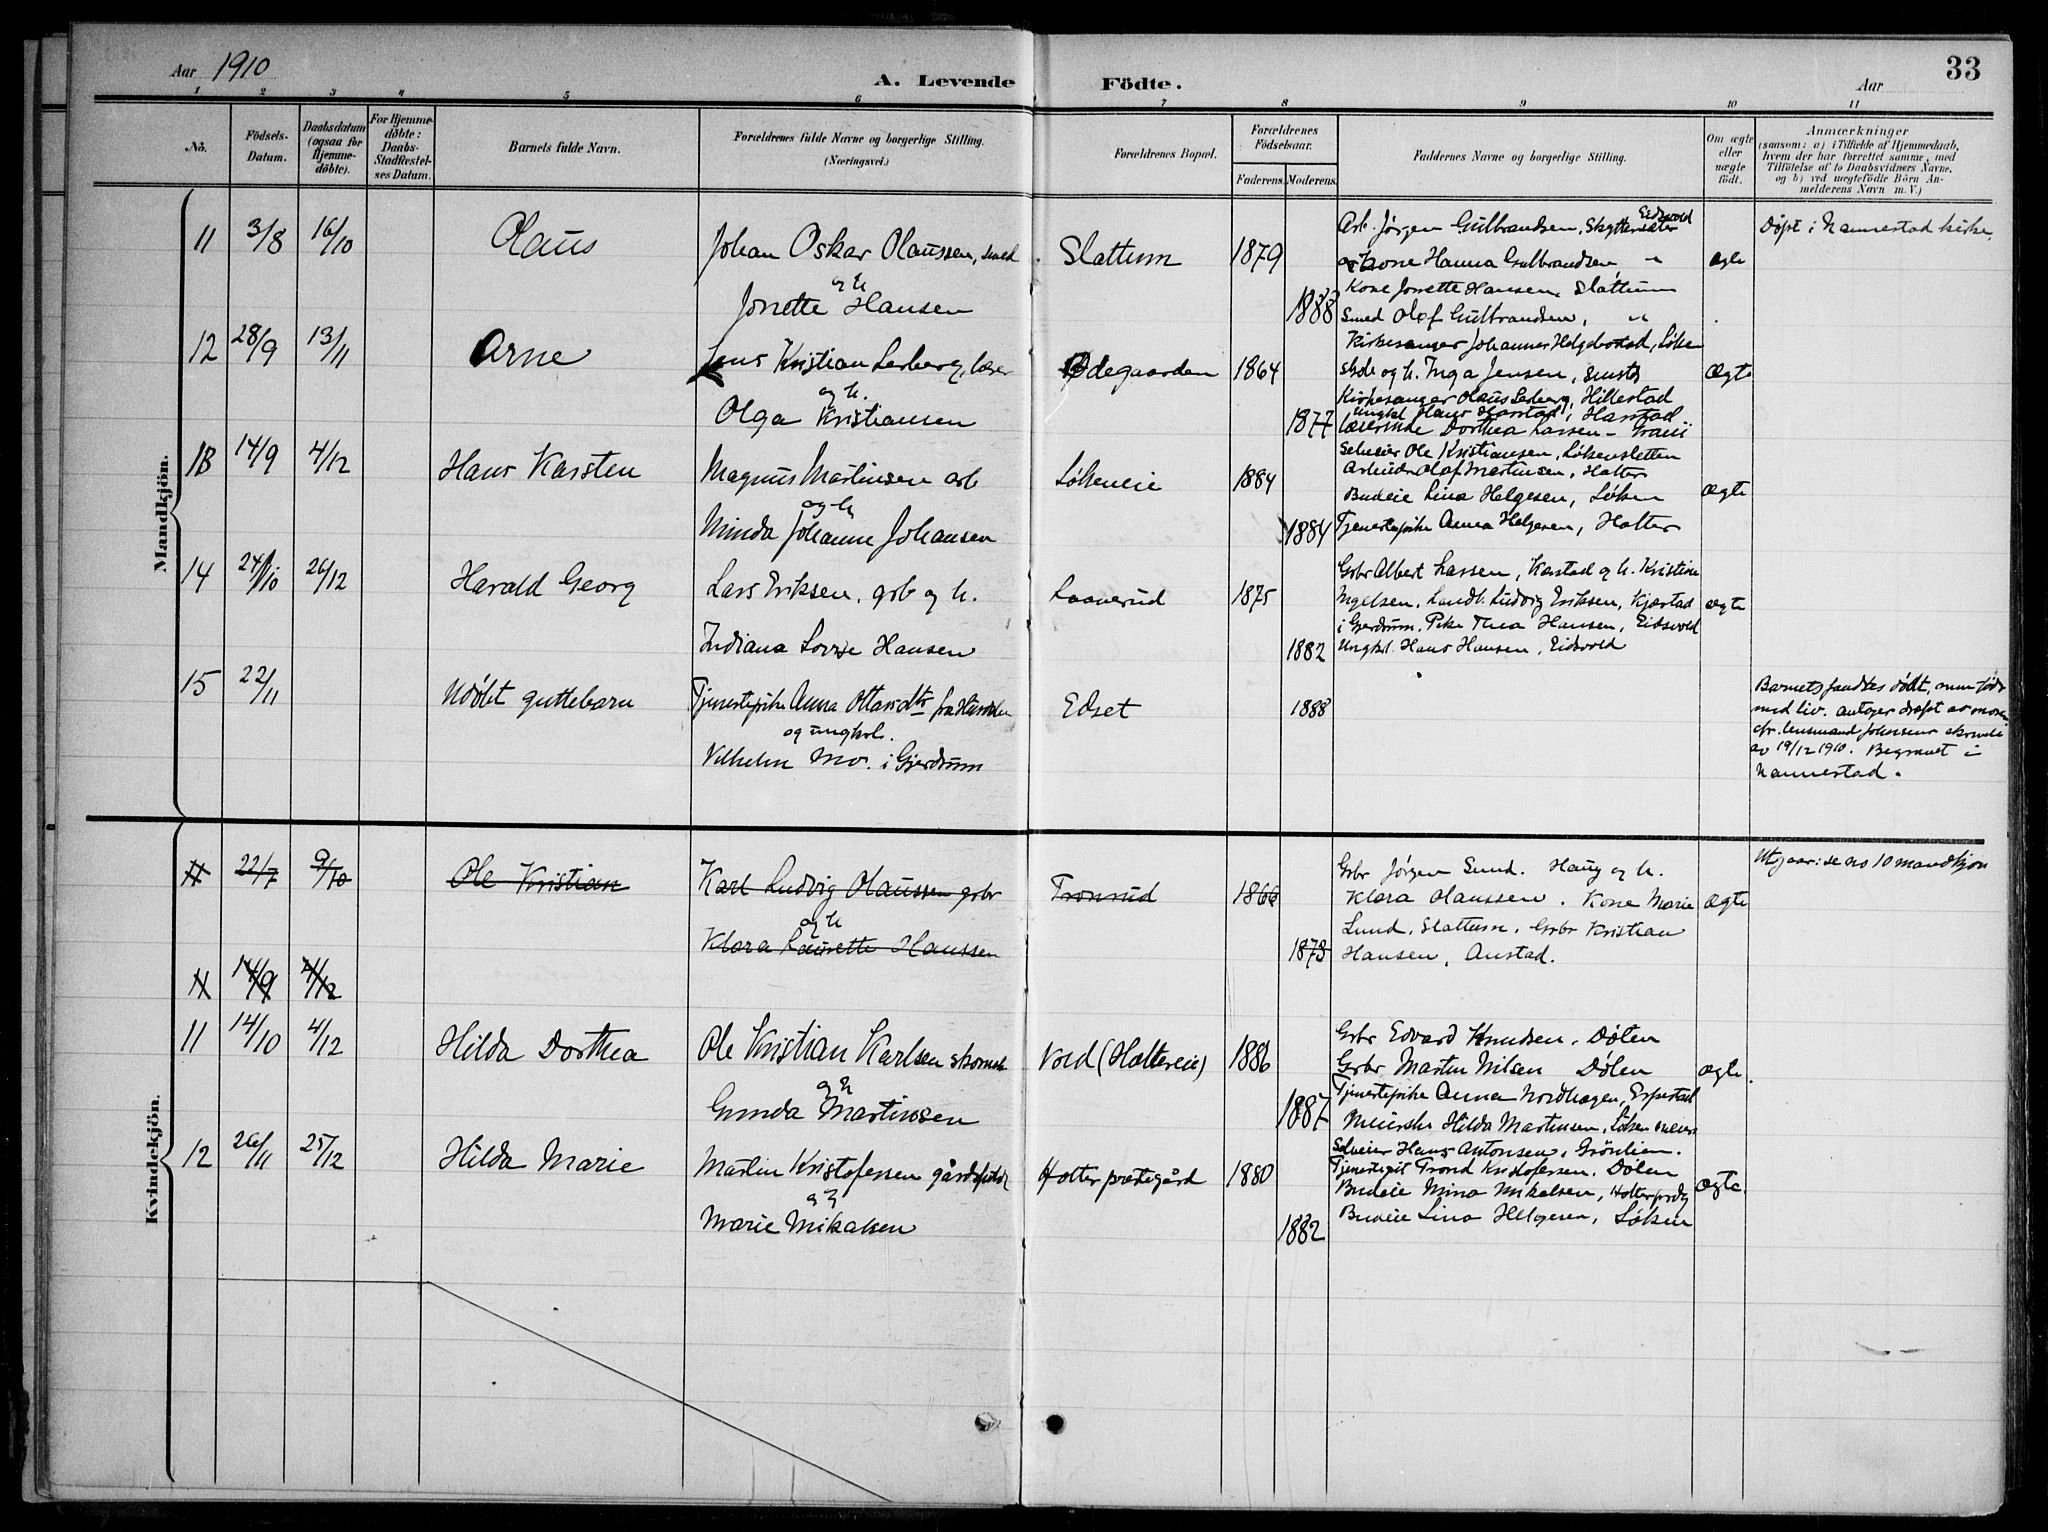 Aar 1910
A. Levende Födte.
Aar
33
1 2 3 4 5 6 7 8 9 10 11
No.
Födsels-Datum.
Daabsdatum (ogsaa for Hjemmedöbte).
For Hjemmedöbte: Daabs-Stadfæstelses Datum.
Barnets fulde Navn.
Forældrenes fulde Navne og borgerlige Stilling. (Næringsvei.)
Forældrenes Bopæl.
Forældrenes Födselsaar.
Faderens. Moderens.
Faddernes Navne og borgerlige Stilling.
Om ægte eller uægte födt.
Anmærkninger
(saasom: a) i Tilfælde af Hjemmedaab,
hvem der har forrettet samme, med
Tilföielse af to Daabsvidners Navne,
og b) ved uægtefödte Börn An-
melderens Navn m. V.)
Mandkjön.
11 3/8 16/10 Olaus
Johan Oskar Olaussen, smed
og h
Jonette Hansen
Slattum 1879 1883
Arb. Jørgen Gulbrandsen, Skyttersæter Eidsvold
og kone Hanna Gulbrandsen "
Kone Jonette Hansen, Slattum
Smed Olof Gulbrandsen, "
ægte
Døpt i Nannestad kirke.
12 28/9 13/11 Arne
Jens Kristian Lerberg, lærer
og h.
Olga Kristiansen
Ødegaarden 1864 1877
Kirkesanger Johannes Helgebostad, Løken
skole og h. Inga Jensen,
Kirkesanger Olaus Lerberg, Hillestad
Ungkl Hans Harstad, Harstad
Lærerinde Dorthea Larsen
Ægte
13 14/9 4/12 Hans Karsten
Magnus Martinsen arb
og h
Minda Johanne Johansen
Løkeneie 1884 1884
Selveier Ole Kristiansen, Løkensletten
Arbeider Olaf Martinsen, Holter
Budeie Lina Helgesen, Løken
Tjenestepike Anna Helgesen, Holter
ægte
14 24/10 26/12 Harald Georg
Lars Eriksen, grb og h.
Indiana Lovise Hansen
Laanerud 1875 1882
Grbr Albert Larsen, Karstad og h. Kristine
Ingelsen, Landh. Ludvig Eriksen, Kjærstad
i Gjerdrum. Pike Thea Hansen, Eidsvold
Ungkl. Hans Hansen, Eidsvold
ægte
15 22/11 Udøbt guttebarn
Tjenestepike Anna Ottarsdtr fra
og ungkarl.
Vilhelm Mo. i Gjerdrum
Edset 1888
Barnet fandtes dødt, men født
med liv. Antager dræpt av moren
cfr. lensmand Johansens skrivelse
av 19/12 1910. Begravet i
Nannestad.
Kvindekjön.
11 22/7 9/10 Ole Kristian
Karl Ludvig Olaussen grbr
og h
Klara Laurette Hanssen
Tronrud 1866 1873
Grbr Jørgen Sund. Haug og h.
Klara Olaussen. Kone Marie
Lund, Slattum, Grbr Kristian
Hansen, Austad.
Ægte
Utgaar: se no 10 mandkjøn
11 14/9 4/12
11 14/10 4/12 Hilda Dorthea
Ole Kristian Karlsen skomak
og h
Gunda Martinsen
Vold (Holtereie) 1886 1887
Grbr Edvard Knudsen. Døten
Grbr Martin Nilsen Dølen
Tjenestepike Anna Nordhagen, Espestad
Meierske Hilda Martinsen, Løken meieri
ægte.
12 26/11 25/12 Hilda Marie
Martin Kristofersen
og h
Marie Mikalsen
Holter prestegård 1880 1882
Selveier Hans Antonsen, Grönlien.
Tjenestegut Trond Kristofersen. Dølen
Budeie Mina Mikalsen, Holter prstg
Budeie Lina Helgesen, Løken
ægte.